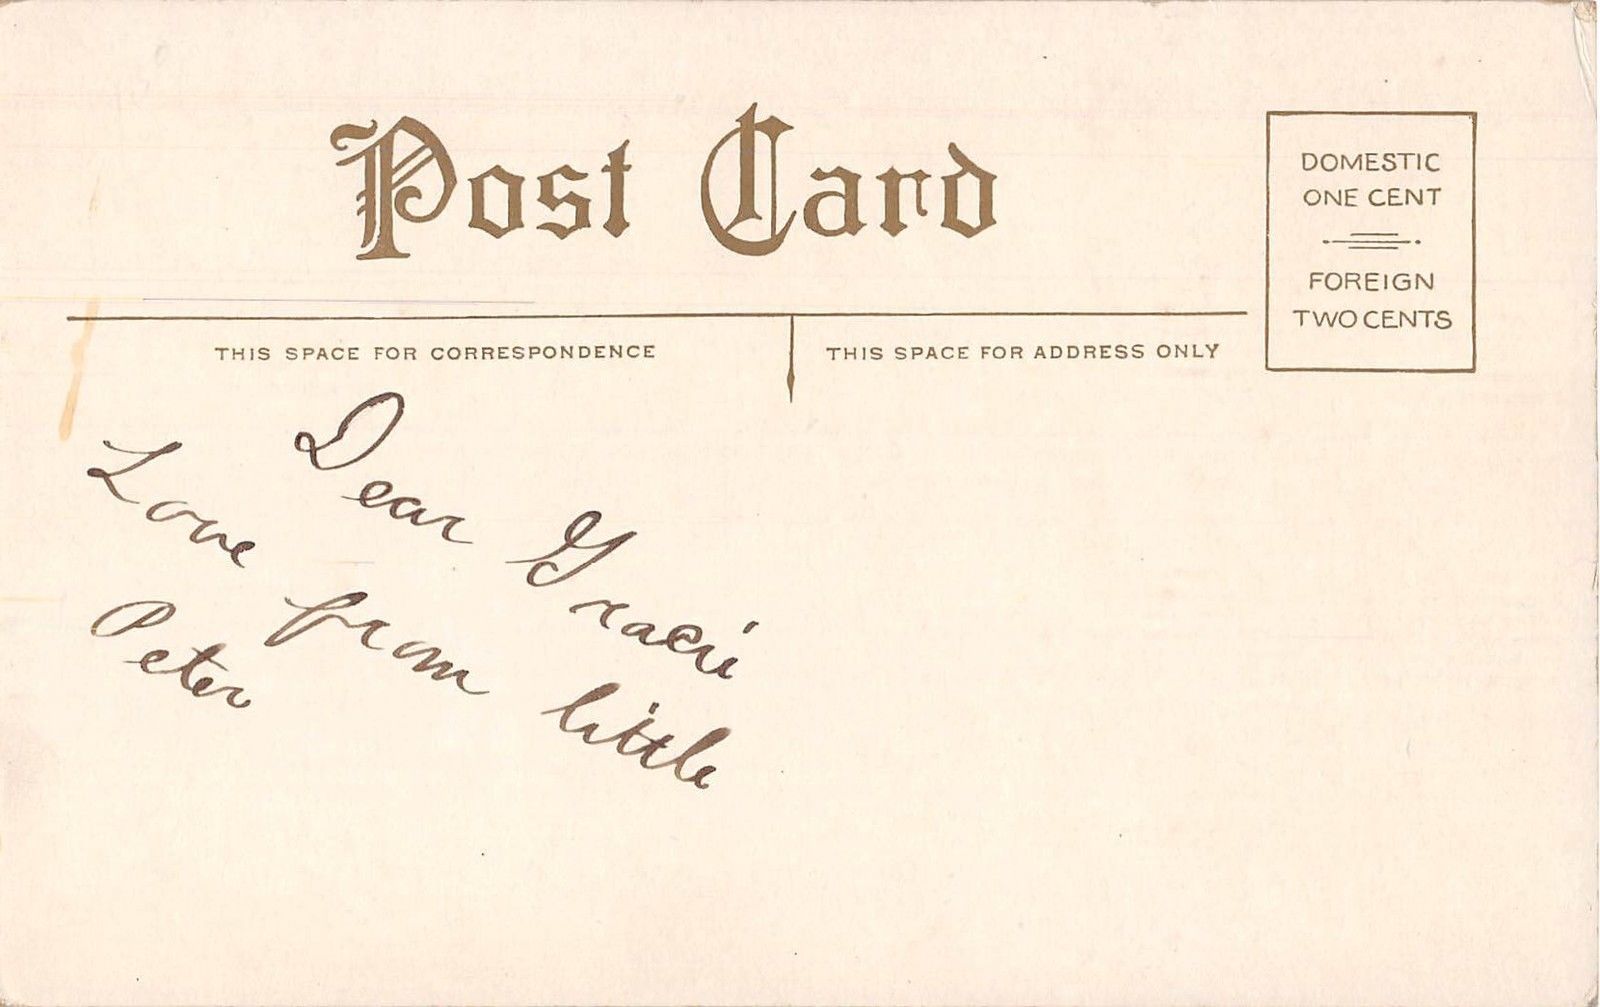 Post Card
DOMESTIC
ONE CENT
FOREIGN
TWO CENTS
THIS SPACE FOR CORRESPONDENCE
THIS SPACE FOR ADDRESS ONLY
Dear Gracie
Love from little
Peter